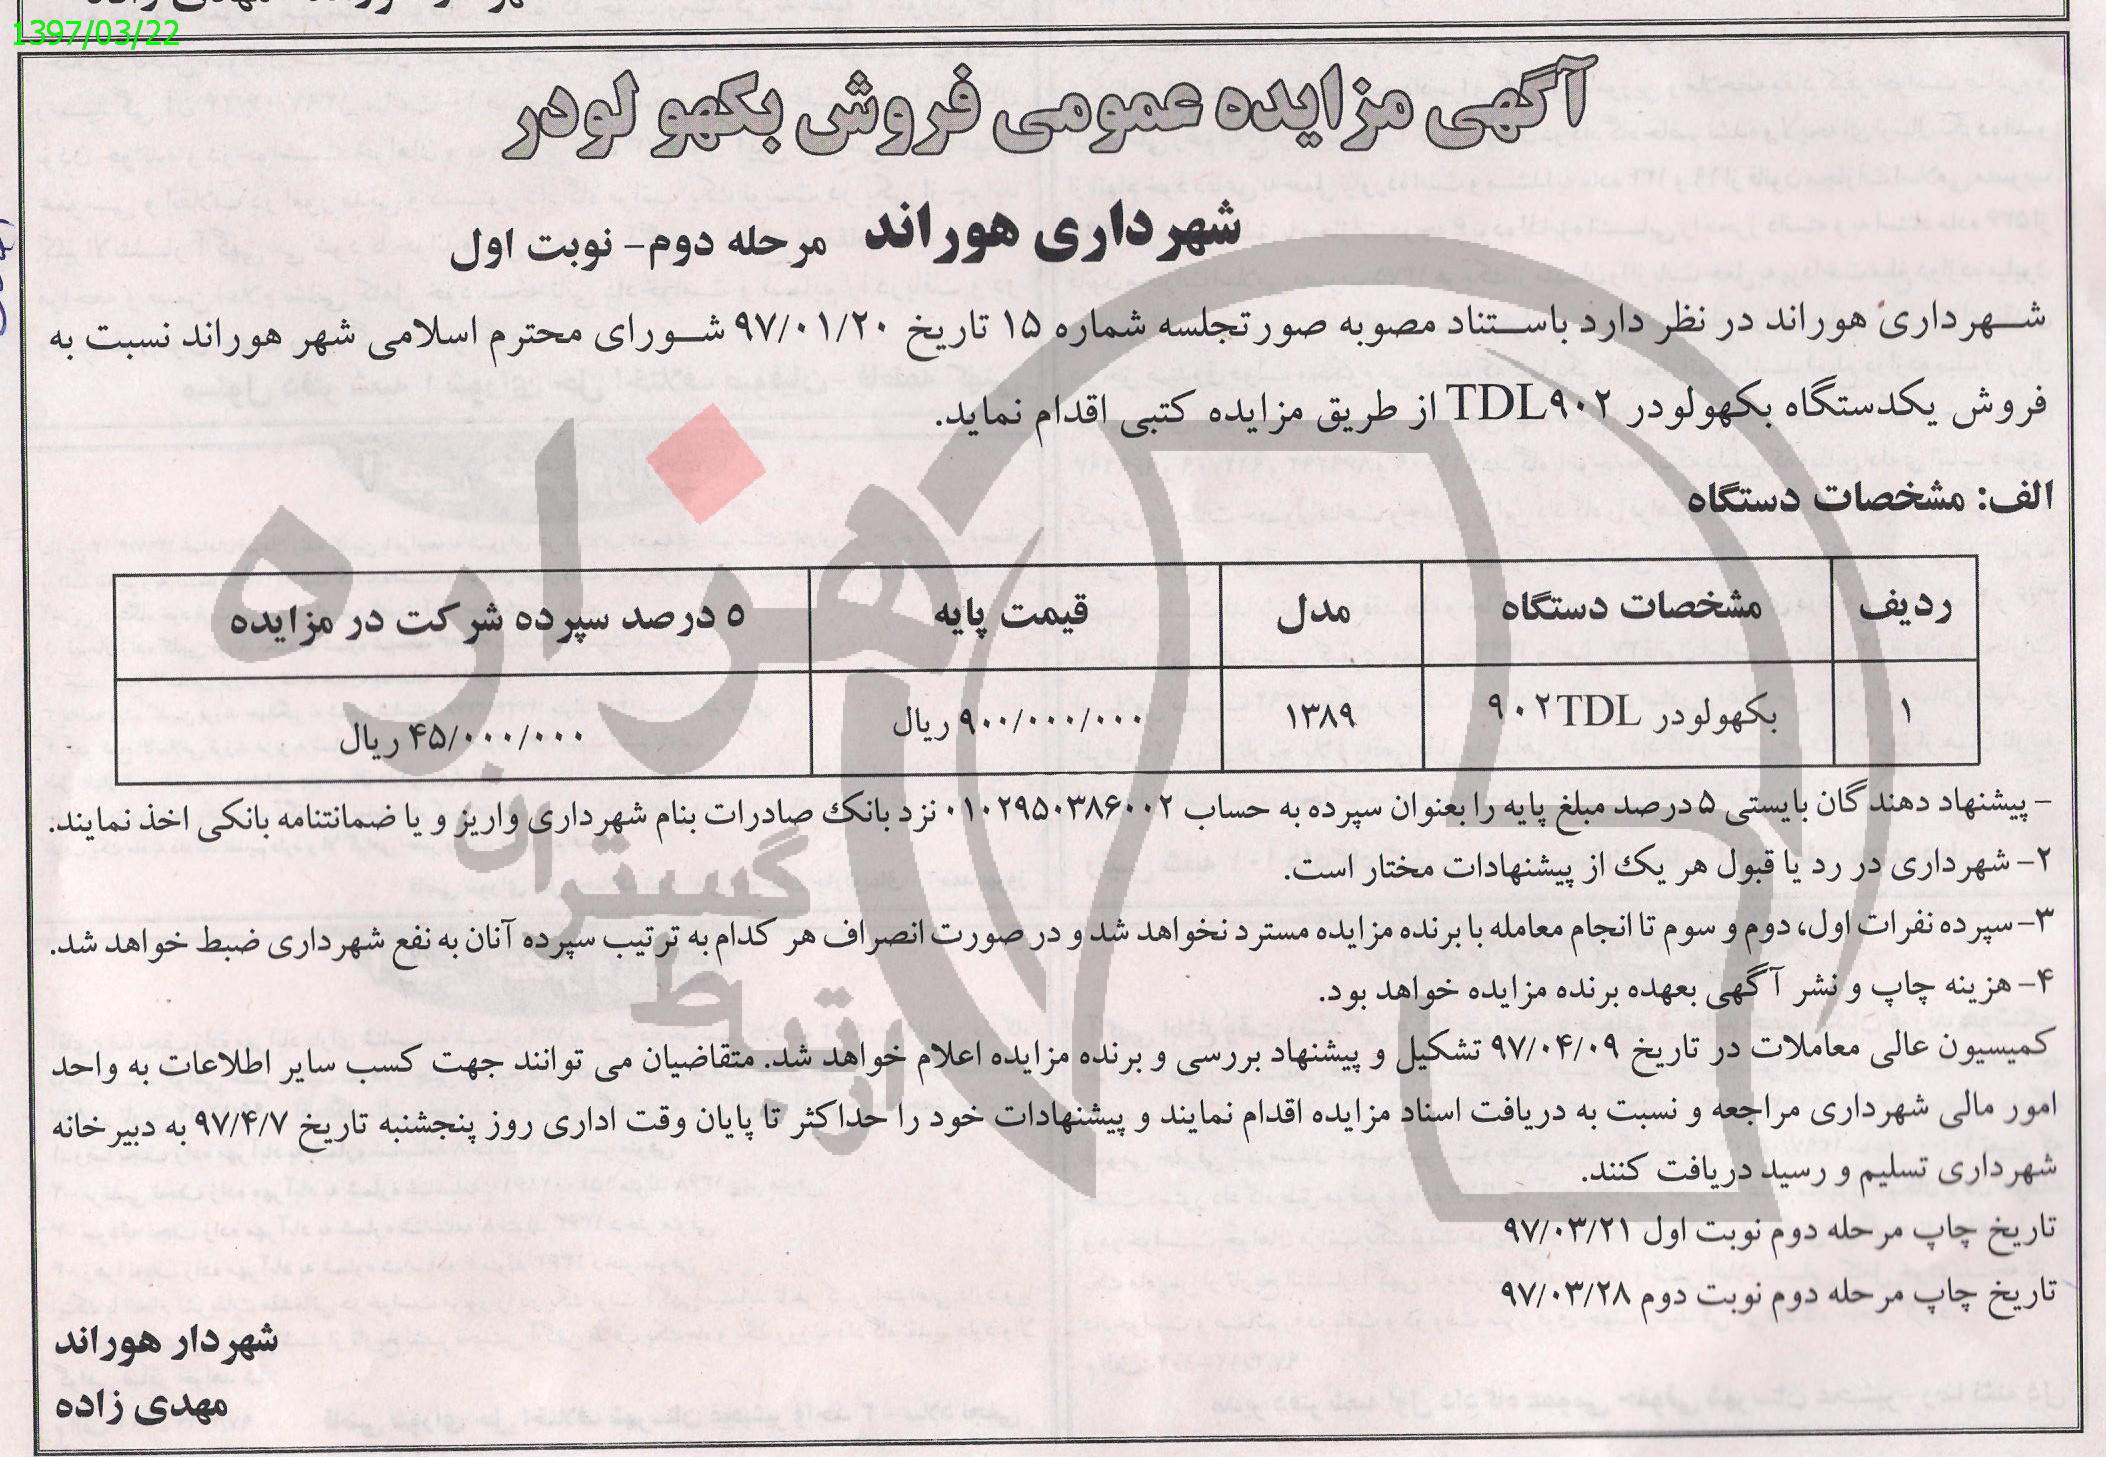 1397/03/22
آگهی مزایده عمومی فروش بکهو لودر
شهرداری هوراند مرحله دوم- نوبت اول
شهرداری هوراند در نظر دارد باستناد مصوبه صورتجلسه شماره ۱۵ تاریخ ۹۷/۰۱/۲۰ شورای محترم اسلامی شهر هوراند نسبت به
فروش یکدستگاه بکهولودر TDL۹۰۲ از طریق مزایده کتبی اقدام نماید.
الف: مشخصات دستگاه
ردیف مشخصات دستگاه مدل قیمت پایه ۵ درصد سپرده شرکت در مزایده
۱ بکهولودر ۹۰۲TDL ۱۳۸۹ ۹۰۰/۰۰۰/۰۰۰ ریال ۴۵/۰۰۰/۰۰۰ ریال
- پیشنهاد دهندگان بایستی ۵ درصد مبلغ پایه را بعنوان سپرده به حساب ۰۱۰۲۹۵۰۳۸۶۰۰۲ نزد بانک صادرات بنام شهرداری واریز و یا ضمانتنامه بانکی اخذ نمایند.
۲- شهرداری در رد یا قبول هر یک از پیشنهادات مختار است.
۳- سپرده نفرات اول، دوم و سوم تا انجام معامله با برنده مزایده مسترد نخواهد شد و در صورت انصراف هر کدام به ترتیب سپرده آنان به نفع شهرداری ضبط خواهد شد.
۴- هزینه چاپ و نشر آگهی بعهده برنده مزایده خواهد بود.
کمیسیون عالی معاملات در تاریخ ۹۷/۰۴/۰۹ تشکیل و پیشنهاد بررسی و برنده مزایده اعلام خواهد شد. متقاضیان می توانند جهت کسب سایر اطلاعات به واحد
امور مالی شهرداری مراجعه و نسبت به دریافت اسناد مزایده اقدام نمایند و پیشنهادات خود را حداکثر تا پایان وقت اداری روز پنجشنبه تاریخ ۹۷/۴/۷ به دبیرخانه
شهرداری تسلیم و رسید دریافت کنند.
تاریخ چاپ مرحله دوم نوبت اول ۹۷/۰۳/۲۱
تاریخ چاپ مرحله دوم نوبت دوم ۹۷/۰۳/۲۸
شهردار هوراند
مهدی زاده
هزاره
گستران